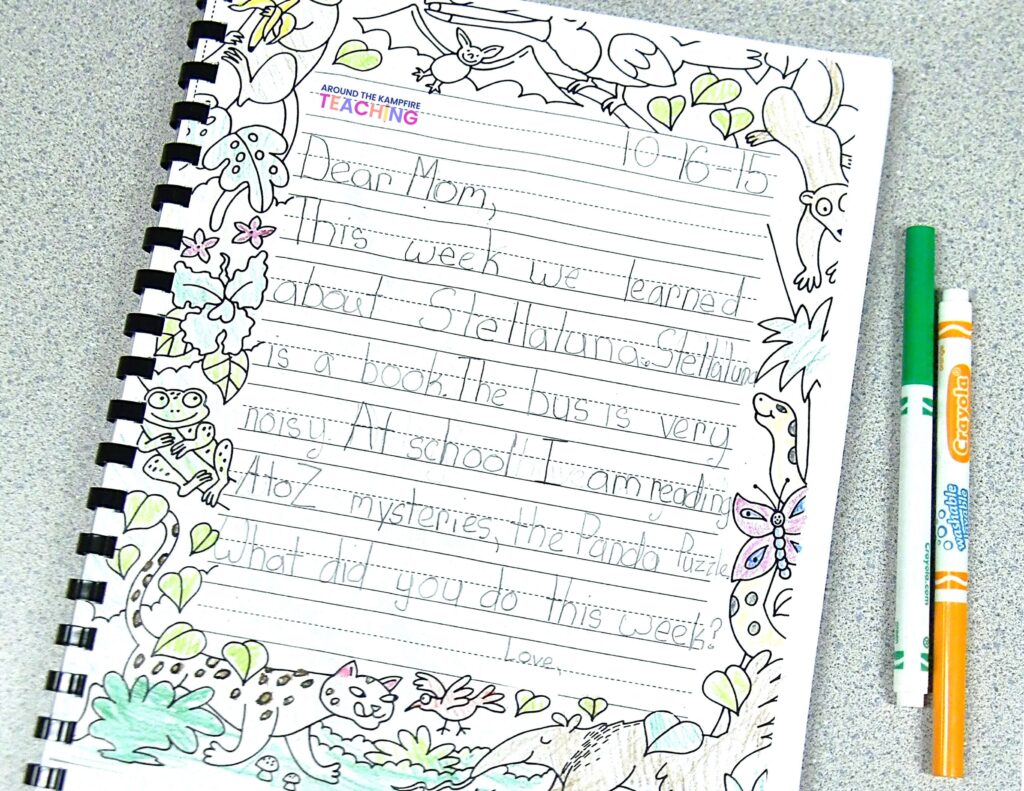 AROUND THE KAMPFIRE
TEACHING
10-16-15
Dear Mom,
This week we learned
about Stellaluna. Stellaluna
is a book. The bus is very
noisy. At school I am reading
A to Z mysteries, the Panda Puzzle.
What did you do this week?
Love,
Crayola.com
orange
Crayola
washable